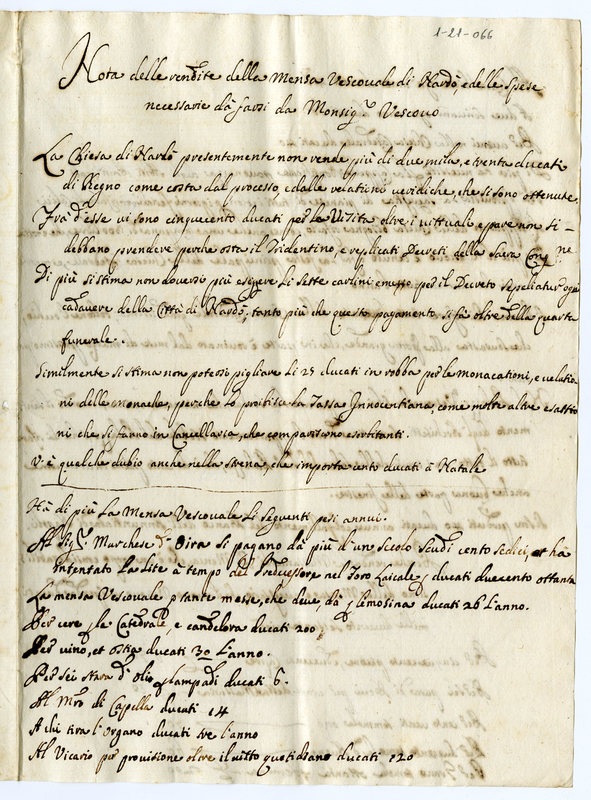 1-21-066
Nota delle rendite della Mensa Vescovale di Nardò, e delle spese
necessarie da farsi da Monsig.r Vescovo
La Chiesa di Nardò presentemente non rende più di due mila, e trenta ducati
di Regno come costa dal processo, e dalle relationi veridiche, che si sono ottenute.
Frà d'esse vi sono cinquecento ducati per la Visita oltre i vittuali, e pare non si-
debbano prendere perche osta il Tridentino, e replicati Decreti della Sacra Cong.ne
Di più si stima non doversi più esigere li sette carlini e mezzo per il Decreto sepeliatur ogni
cadavere della Città di Nardò, tanto più che questo pagamento si fà oltre della quarta
funerale.
Similmente si stima non potersi pigliare li 25 ducati in robba per le monacationi, e velatio-
ni delle monache, perche lo proibisce la Tassa Innocentiana, come molte altre esattio
ni che si fanno in Cancellaria, che compariscono esorbitanti.
V'è quelche dubio anche nella strena, che importa cento ducati à Natale
Hà di più la Mensa Vescovale li seguenti pesi annui.
Al Sig.r Marchese d'Oira si pagano dà più d'un secolo scudi cento sedici, et ha
intentato la lite à tempo del Predecessore nel foro laicale p ducati duecento ottanta
La mensa Vescovale p tante messe, che deve, dà p lemosina ducati 26 l'anno.
Per cere p le Catedrale, e candelora ducati 200
Per vino, et ostia ducati 30 l'anno.
Per sei stara d'olio p lampadi ducati 6.
Al Mro di Capella ducati 14
A chi tira l'Organo ducati tre l'anno
Al Vicario per provisione oltre il vitto quotidiano ducati 120